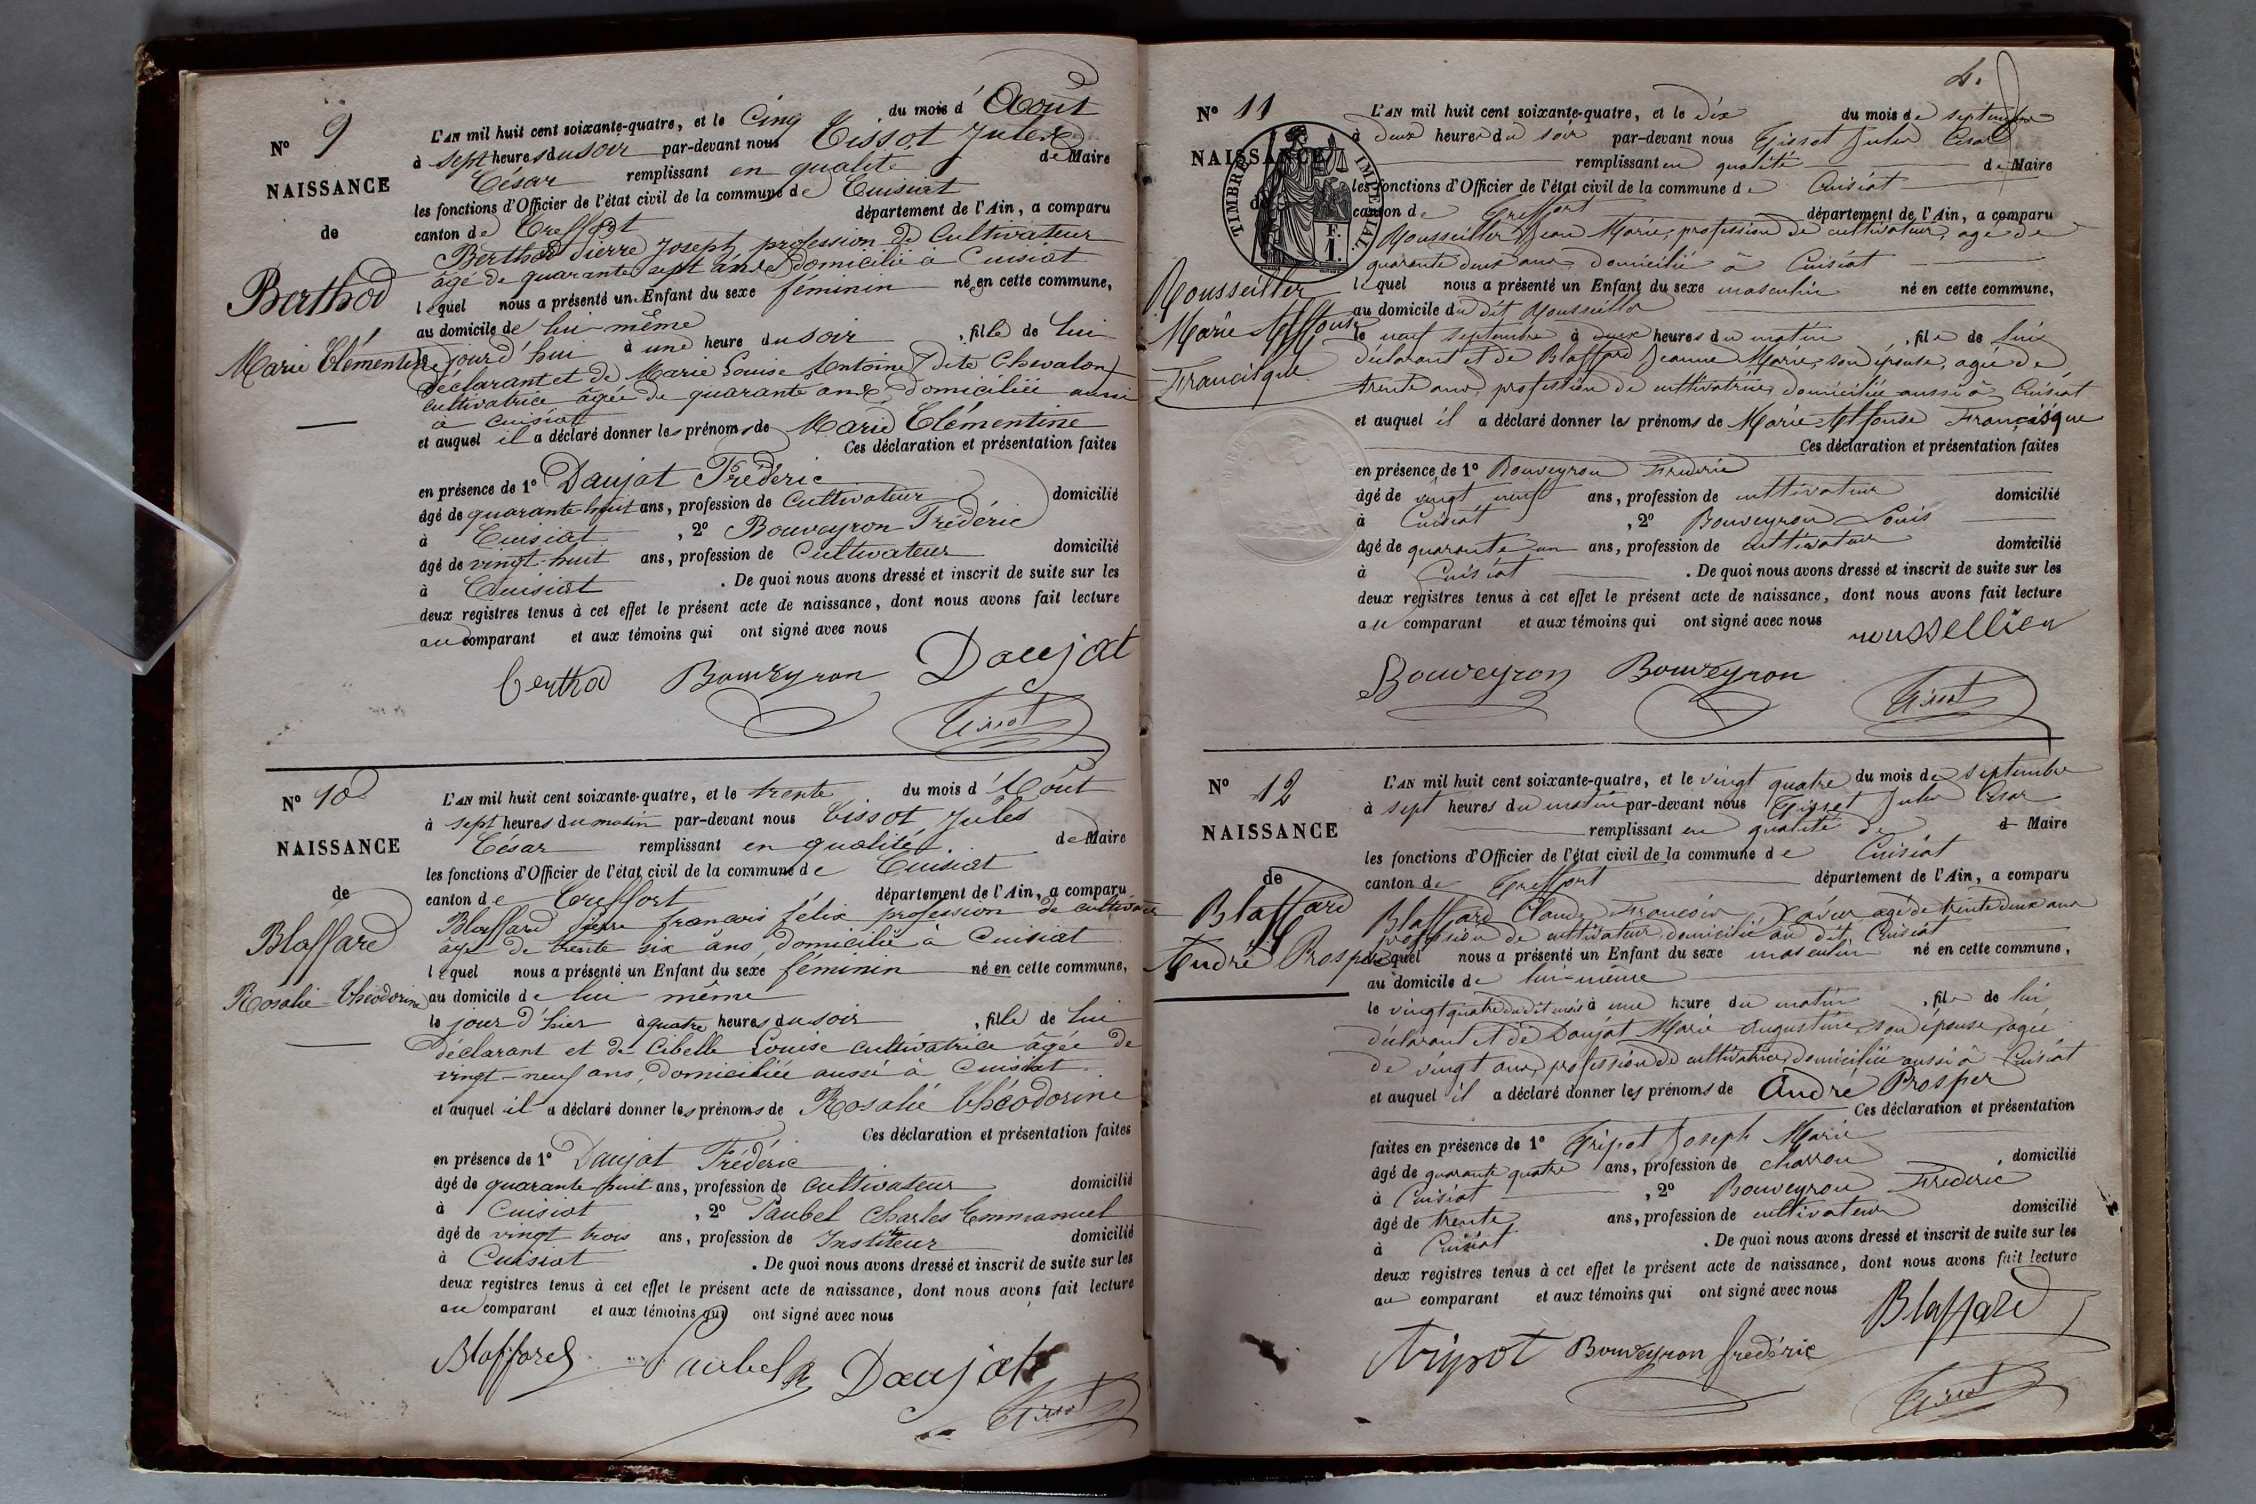 N° 9
NAISSANCE
de
Berthod
Marie Clémentine
L'AN mil huit cent soixante-quatre, et le Cinq du mois d' Août
à sept heures du soir par-devant nous Tissot Jules
César remplissant en qualité de Maire
les fonctions d'Officier de l'état civil de la commune de Cuisiat
canton de Treffort département de l'Ain, a comparu
Berthod Pierre Joseph profession de Cultivateur
âgé de quarante sept ans domicilié à Cuisiat
lequel nous a présenté un Enfant du sexe féminin né en cette commune,
au domicile de lui-même
le jour d'hui à une heure du soir, fille de lui
déclarant et de Marie Louise Antoine dite Chevalon
cultivatrice âgée de quarante ans, domiciliée aussi
à Cuisiat
et auquel il a déclaré donner les prénoms de Marie Clémentine
Ces déclaration et présentation faites
en présence de 1° Daujat Frédéric
âgé de quarante huit ans, profession de Cultivateur domicilié
à Cuisiat, 2° Bouveyron Frédéric
âgé de vingt-huit ans, profession de Cultivateur domicilié
à Cuisiat. De quoi nous avons dressé et inscrit de suite sur les
deux registres tenus à cet effet le présent acte de naissance, dont nous avons fait lecture
au comparant et aux témoins qui ont signé avec nous
berthod Bouveyron Daujat
Tissot
N° 10
NAISSANCE
de
Blaffard
Rosalie Théodorine
L'AN mil huit cent soixante-quatre, et le trente du mois d'Août
à sept heures du matin par-devant nous Tissot Jules
César remplissant en qualité de Maire
les fonctions d'Officier de l'état civil de la commune de Cuisiat
canton de Treffort département de l'Ain, a comparu
Blaffard Pierre françois félix profession de cultivateur
âgé de trente six ans domicilié à Cuisiat
lequel nous a présenté un Enfant du sexe féminin né en cette commune,
au domicile de lui-même
le jour d'hier à quatre heures du soir, fille de lui
déclarant et de Cibelle Louise cultivatrice âgée de
vingt-neuf ans, domiciliée aussi à Cuisiat.
et auquel il a déclaré donner les prénoms de Rosalie Théodorine
Ces déclaration et présentation faites
en présence de 1° Daujat Frédéric
âgé de quarante huit ans, profession de Cultivateur domicilié
à Cuisiat, 2° Paubel Charles Emmanuel
âgé de vingt trois ans, profession de Instituteur domicilié
à Cuisiat. De quoi nous avons dressé et inscrit de suite sur les
deux registres tenus à cet effet le présent acte de naissance, dont nous avons fait lecture
au comparant et aux témoins qui ont signé avec nous
Blaffard Paubel Daujat
Tissot
4.
N° 11
NAISSANCE
de
TIMBRE IMPÉRIAL.
1 F.
Rousseiller
Marie Alfonse
Francisque
L'AN mil huit cent soixante-quatre, et le dix du mois de septembre
à deux heures du soir par-devant nous Tissot Jules César
remplissant en qualité de Maire
les fonctions d'Officier de l'état civil de la commune de Cuisiat
canton de Treffort département de l'Ain, a comparu
Rousseiller Jean Marie, profession de cultivateur, agé de
quarante deux ans, domicilié à Cuisiat
lequel nous a présenté un Enfant du sexe masculin né en cette commune,
au domicile du dit Rousseiller
le neuf septembre à deux heures du matin, fils de lui
déclarant et de Blaffard Jeanne Marie, son épouse, agée de
trente ans, profession de cultivatrice, domiciliée aussi à Cuisiat
et auquel il a déclaré donner les prénoms de Marie Alfonse Francisque
Ces déclaration et présentation faites
en présence de 1° Bouveyron Frédéric
âgé de vingt neuf ans, profession de cultivateur domicilié
à Cuisiat, 2° Bouveyron Louis
âgé de quarante un ans, profession de cultivateur domicilié
à Cuisiat. De quoi nous avons dressé et inscrit de suite sur les
deux registres tenus à cet effet le présent acte de naissance, dont nous avons fait lecture
au comparant et aux témoins qui ont signé avec nous
roussellier
Bouveyron Bouveyron
Tissot
N° 12
NAISSANCE
de
Blaffard
André Prosper
L'AN mil huit cent soixante-quatre, et le vingt quatre du mois de septembre
à sept heures du matin par-devant nous Tissot Jules César
remplissant en qualité de d Maire
les fonctions d'Officier de l'état civil de la commune de Cuisiat
canton de Treffort département de l'Ain, a comparu
Blaffard Claude François Xavier agé de trente deux ans
profession de cultivateur, domicilié au dit Cuisiat
lequel nous a présenté un Enfant du sexe masculin né en cette commune,
au domicile de lui-même
le vingt quatre du dit mois à une heure du matin, fils de lui
déclarant et de Daujat Marie Augustine, son épouse, agée
de vingt ans, profession de cultivatrice, domiciliée aussi à Cuisiat
et auquel il a déclaré donner les prénoms de André Prosper
Ces déclaration et présentation
faites en présence de 1° Tripot Joseph Marie
âgé de quarante quatre ans, profession de charron domicilié
à Cuisiat, 2° Bouveyron Frédéric
âgé de trente ans, profession de cultivateur domicilié
à Cuisiat. De quoi nous avons dressé et inscrit de suite sur les
deux registres tenus à cet effet le présent acte de naissance, dont nous avons fait lecture
au comparant et aux témoins qui ont signé avec nous
Blaffard
tripot Bouveyron frédéric
Tissot